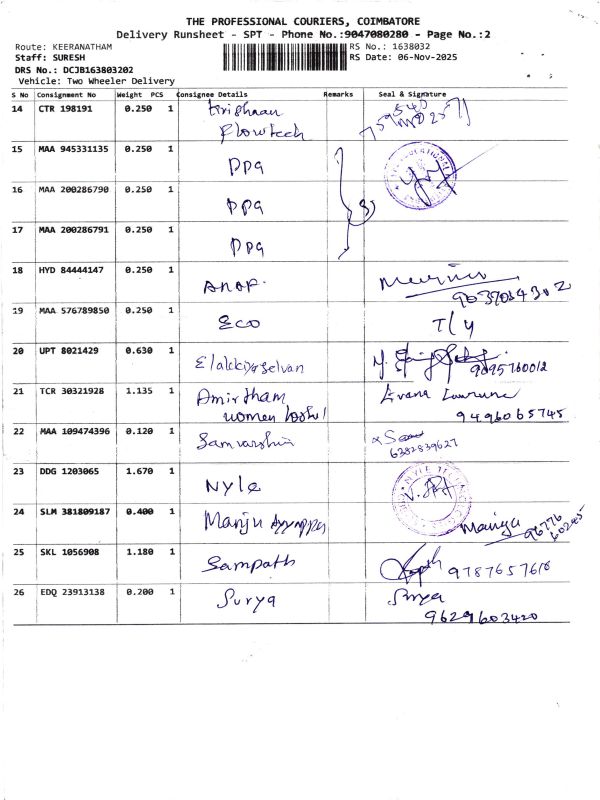 THE PROFESSIONAL COURIERS, COIMBATORE
Delivery Runsheet - SPT - Phone No.:9047080280 - Page No.:2
Route: KEERANATHAM RS No.: 1638032
Staff: SURESH RS Date: 06-Nov-2025
DRS No.: DCJB163803202
Vehicle: Two Wheeler Delivery
S No Consignment No Weight PCS Consignee Details Remarks Seal & Signature
14 CTR 198191 0.250 1 Krishaan
Flowtech
15 MAA 945331135 0.250 1 PPG
16 MAA 200286790 0.250 1 PPG 3)
17 MAA 200286791 0.250 1 PPG
18 HYD 84444147 0.250 1
19 MAA 576789850 0.250 1 Eco T/y
20 UPT 8021429 0.630 1 Elakkiya Selvan 9095760012
21 TCR 30321928 1.135 1 Amirtham
women hostel 9496065745
22 MAA 109474396 0.120 1 Samvarshini
6382839627
23 DDG 1203065 1.670 1 Nyle
24 SLM 381809187 0.400 1 Manju Ayyappa
25 SKL 1056908 1.180 1 Sampath 9787657618
26 EDQ 23913138 0.200 1 Surya Surya
9629603420